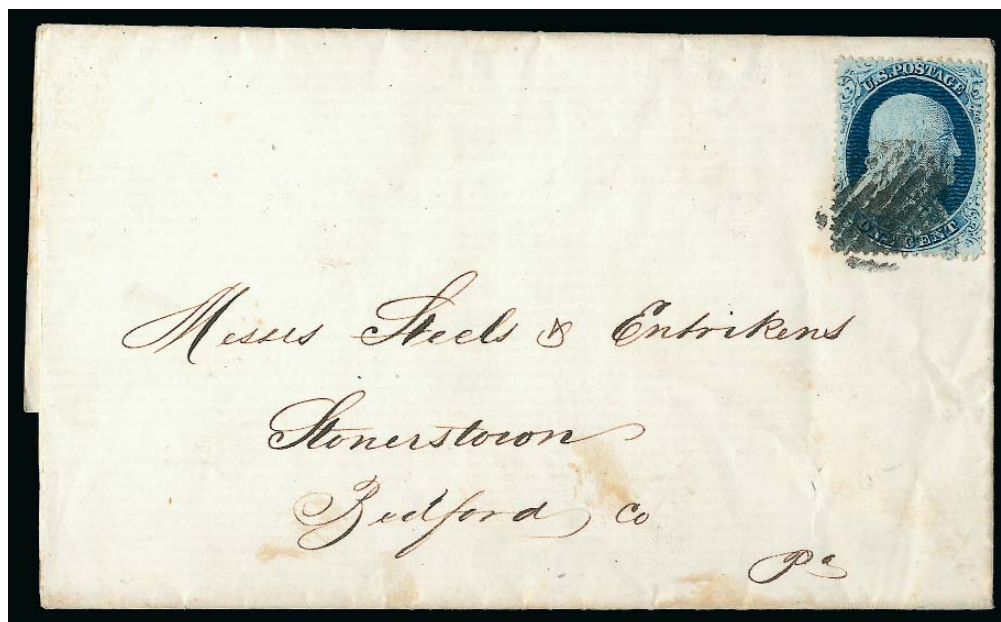 U.S. POSTAGE
ONE CENT
Messrs Steels & Entrikens
Stonerstown
Bedford Co
Pa